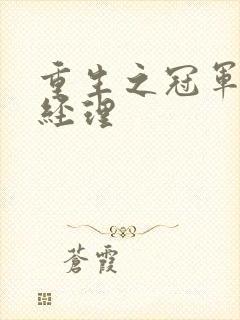 重生之冠軍
經理
蒼霞